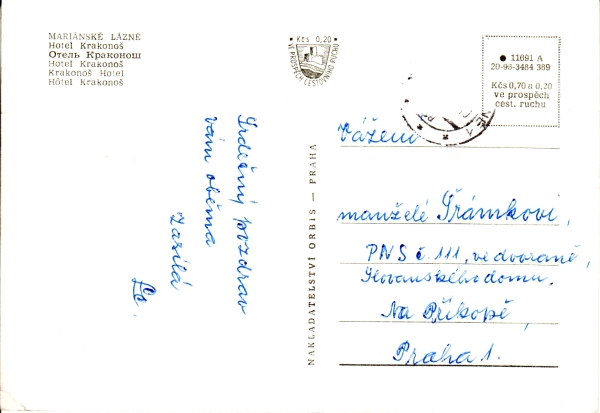 MARIÁNSKÉ LÁZNĚ
Hotel Krakonoš
Отель Краконош
Hotel Krakonoš
Krakonoš Hotel
Hôtel Krakonoš
• Kčs 0,20 •
VE PROSPĚCH CESTOVNÍHO RUCHU
● 11691 A
20-93-3484 369
Kčs 0,70 a 0,20
ve prospěch
cest. ruchu
Srdečný pozdrav
vám oběma
Zasílá
NAKLADATELSTVÍ ORBIS — PRAHA
Vážení
manželé Šrámkovi,
PNS č. 111, ve dvoraně,
Slovanského domu,
Na Příkopě,
Praha 1.